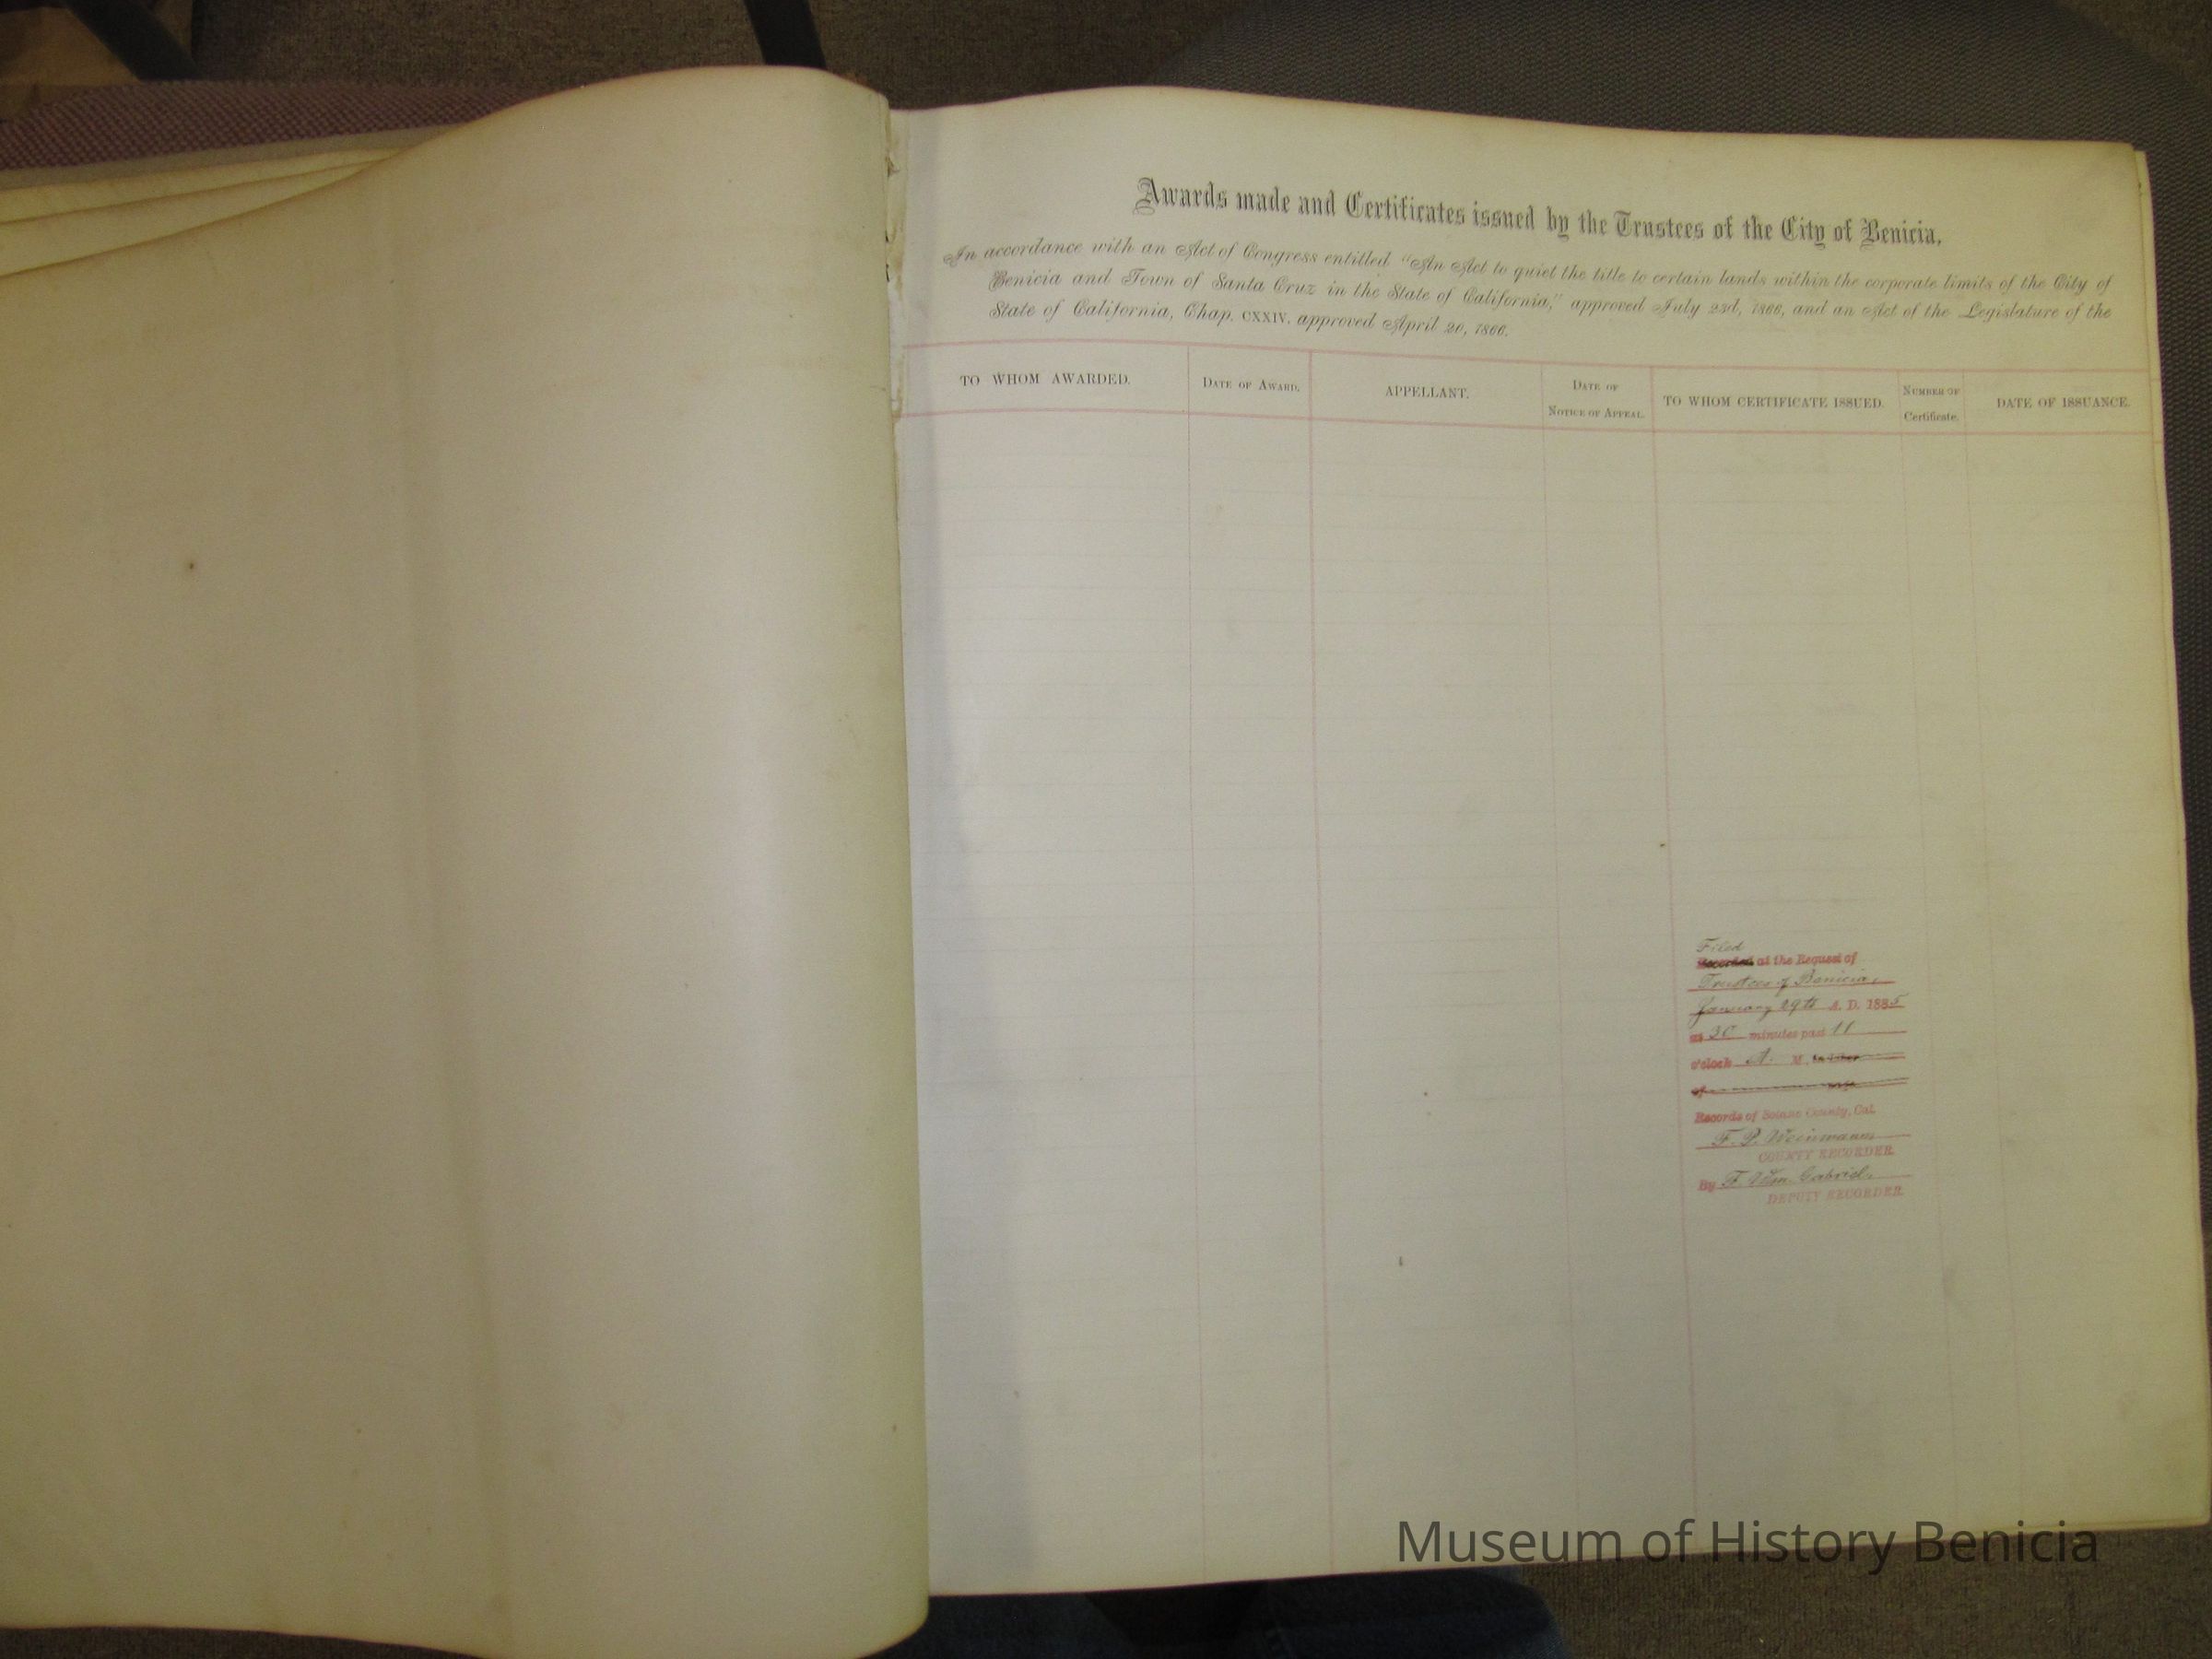 Awards made and Certificates issued by the Trustees of the City of Benicia,
In accordance with an Act of Congress entitled "An Act to quiet the title to certain lands within the corporate limits of the City of
Benicia and Town of Santa Cruz in the State of California," approved July 23d, 1866, and an Act of the Legislature of the
State of California, Chap. CXXIV. approved April 20, 1866.
TO WHOM AWARDED.
DATE OF AWARD.
APPELLANT.
DATE OF
NOTICE OF APPEAL.
TO WHOM CERTIFICATE ISSUED.
NUMBER OF
Certificate.
DATE OF ISSUANCE.
Filed
Recorded at the Request of
Trustees of Benicia,
January 29th A. D. 1885
at 30 minutes past 11
o'clock A. M. in Liber
of page
Records of Solano County, Cal.
F. P. Weinmann
COUNTY RECORDER.
By F. Wm. Gabriel,
DEPUTY RECORDER.
Museum of History Benicia